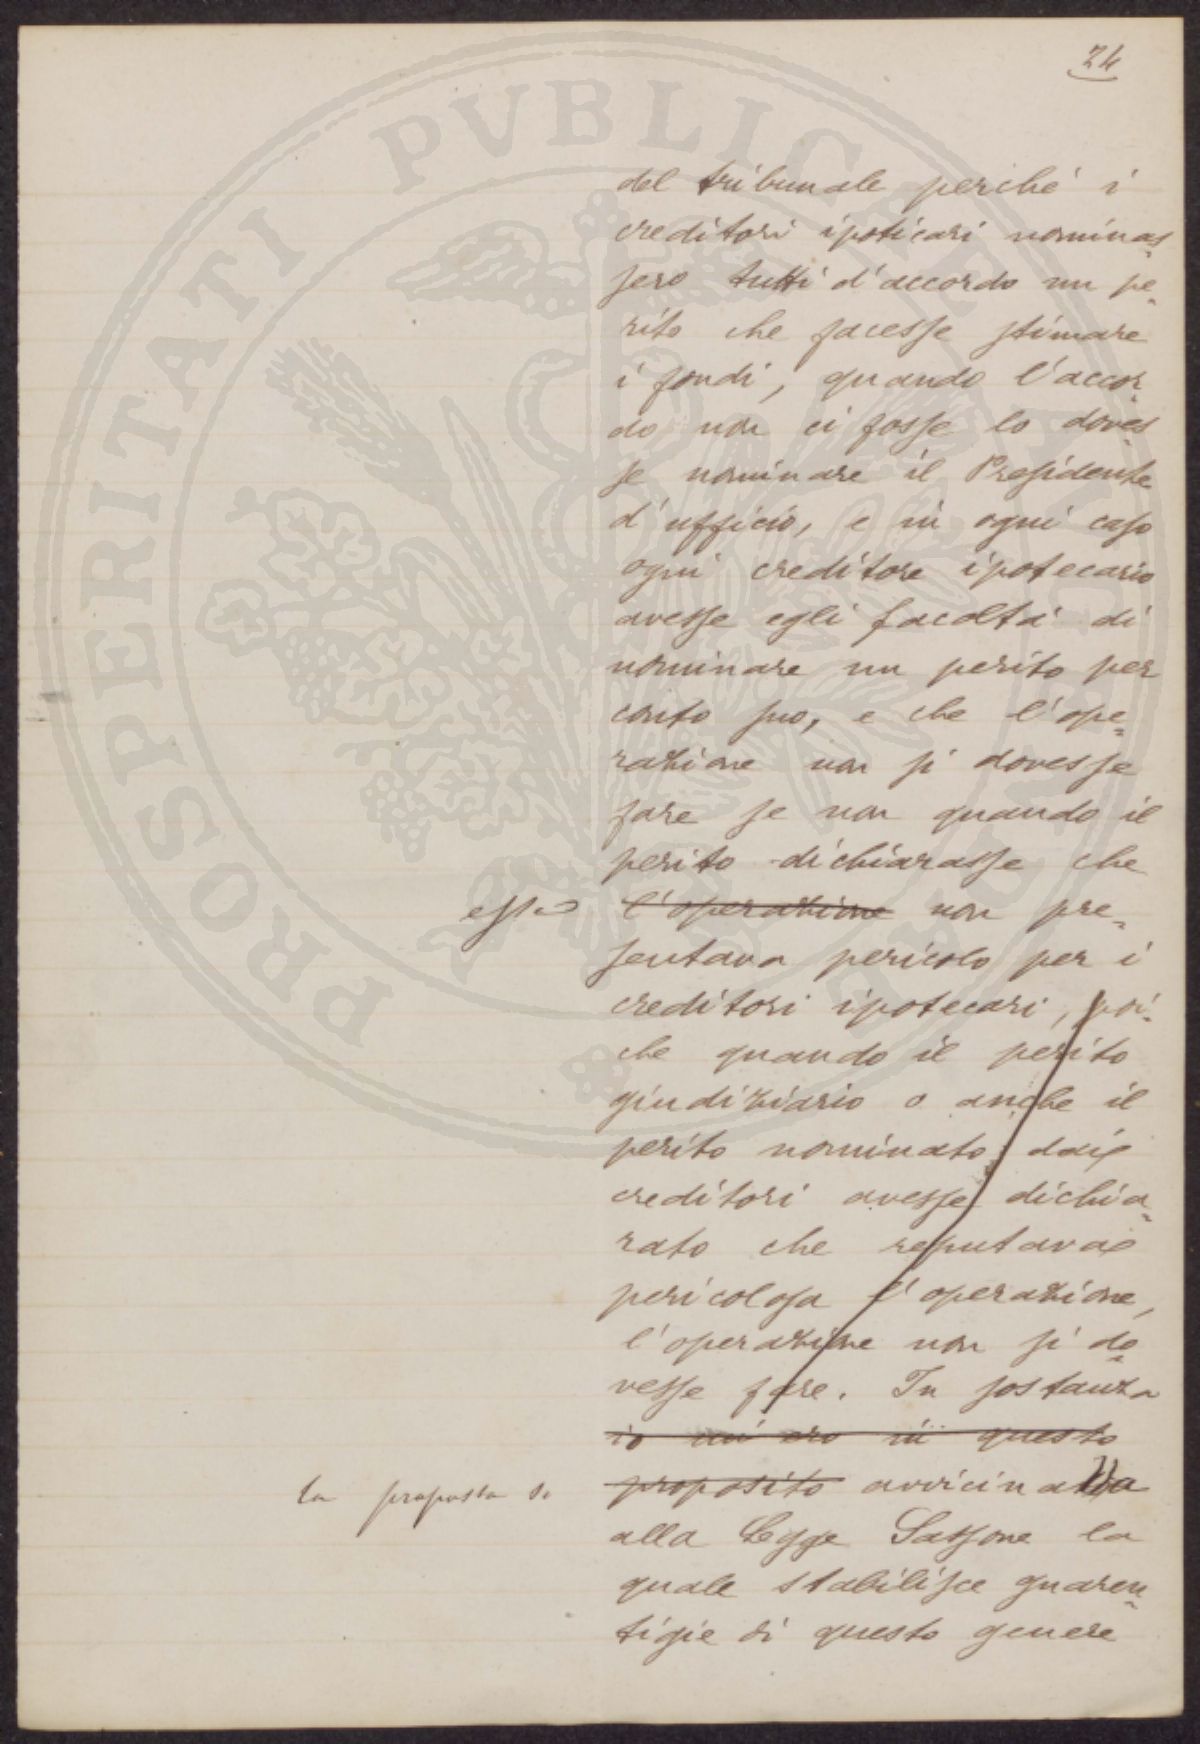 24
del tribunale perché i
creditori ipoticari nominas
sero tutti d'accordo un pe-
rito che facesse stimare
i fondi, quando l'accor-
do non ci fosse lo doves
se nominare il Presidente
d'ufficio, e in ogni caso
ogni creditore ipotecario
avesse egli facoltá di
nominare un perito per
conto suo, e che l'ope-
razione non si dovesse
fare se non quando il
perito dichiarasse che
essa l'operazione non pre-
sentava pericolo per i
creditori ipotecari, poi-
che quando il perito
giudiziario o anche il
perito nominato dai
creditori avesse dichia-
rato che reputava
pericolosa l'operazione,
l'operazione non si do-
vesse fare. In sostanza
io mi ero in questo
la proposta si proposito avvicinava
alla Legge Sassone la
quale stabilisce guaren-
tigie di questo genere
PROSPERITATI PVBLICAE